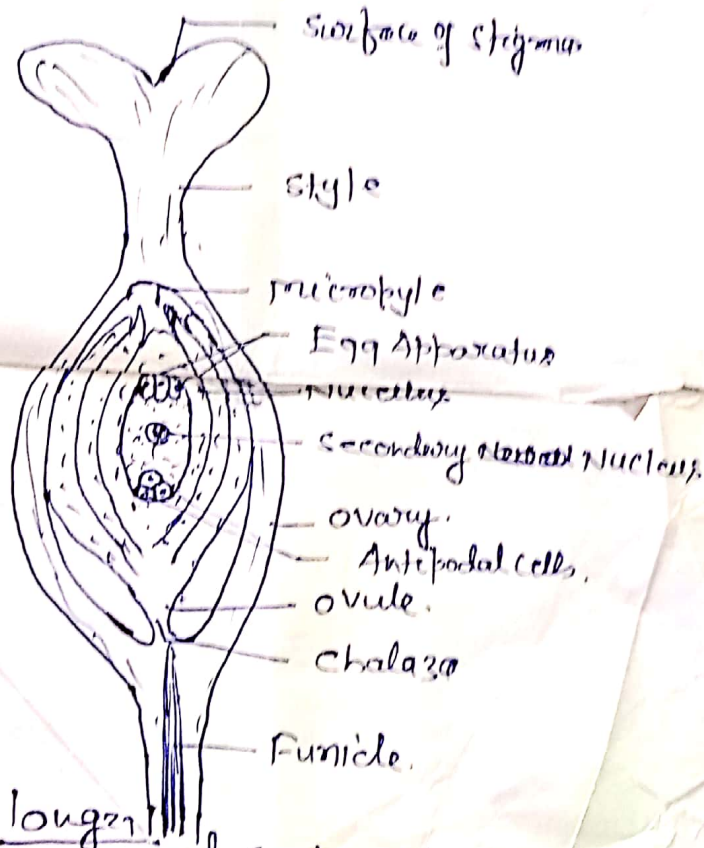 Surface of Stigma
Style
Micropyle
Egg Apparatus
Nucellus
Secondary Nucleus
Ovary.
Antipodal cells.
Ovule.
Chalaza
Funicle.